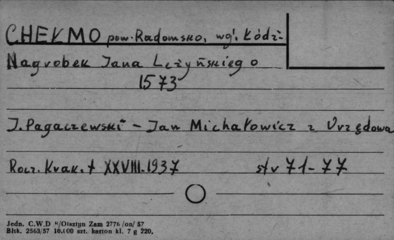 CHEŁMO pow. Radomsko, wg. Łódź
Nagrobek Jana Lężyńskiego
1573
J. Pagaczewski - Jan Michałowicz z Urzędowa
Rocz. Krak. t XXVIII. 1937 str 71-77
Jedn. C.W.D "/Olsztyn Zam 2776/on/57
Bltk. 2563/57 10.000 szt. karton kl. 7 g 220.